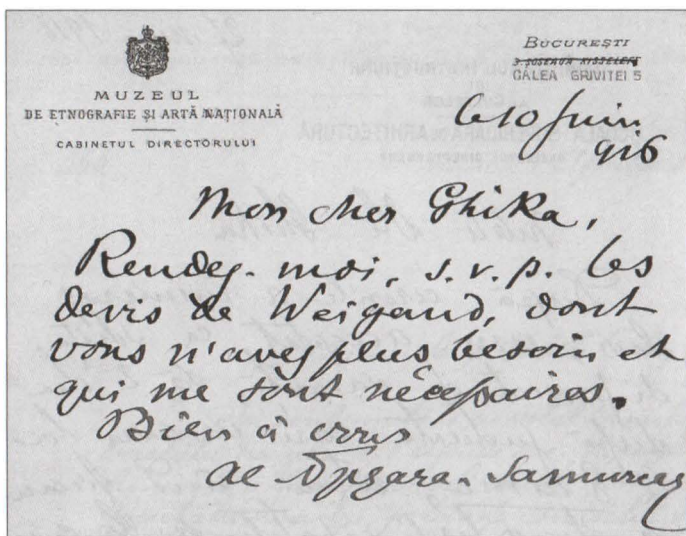 MUZEUL
DE ETNOGRAFIE ȘI ARTĂ NAȚIONALĂ
CABINETUL DIRECTORULUI
BUCUREȘTI
3. ȘOSEAUA KISSELEFF
CALEA GRIVIȚEI 5
le 10 Juin
916
Mon cher Ghika,
Rendez-moi, s.v.p. les
devis de Weigand, dont
vous n'avez plus besoin et
qui me sont nécessaires.
Bien à vous
Al Tzigara-Samurcaș